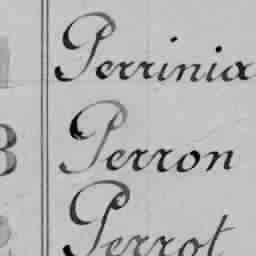 Perrinia
B Perron
Perrot